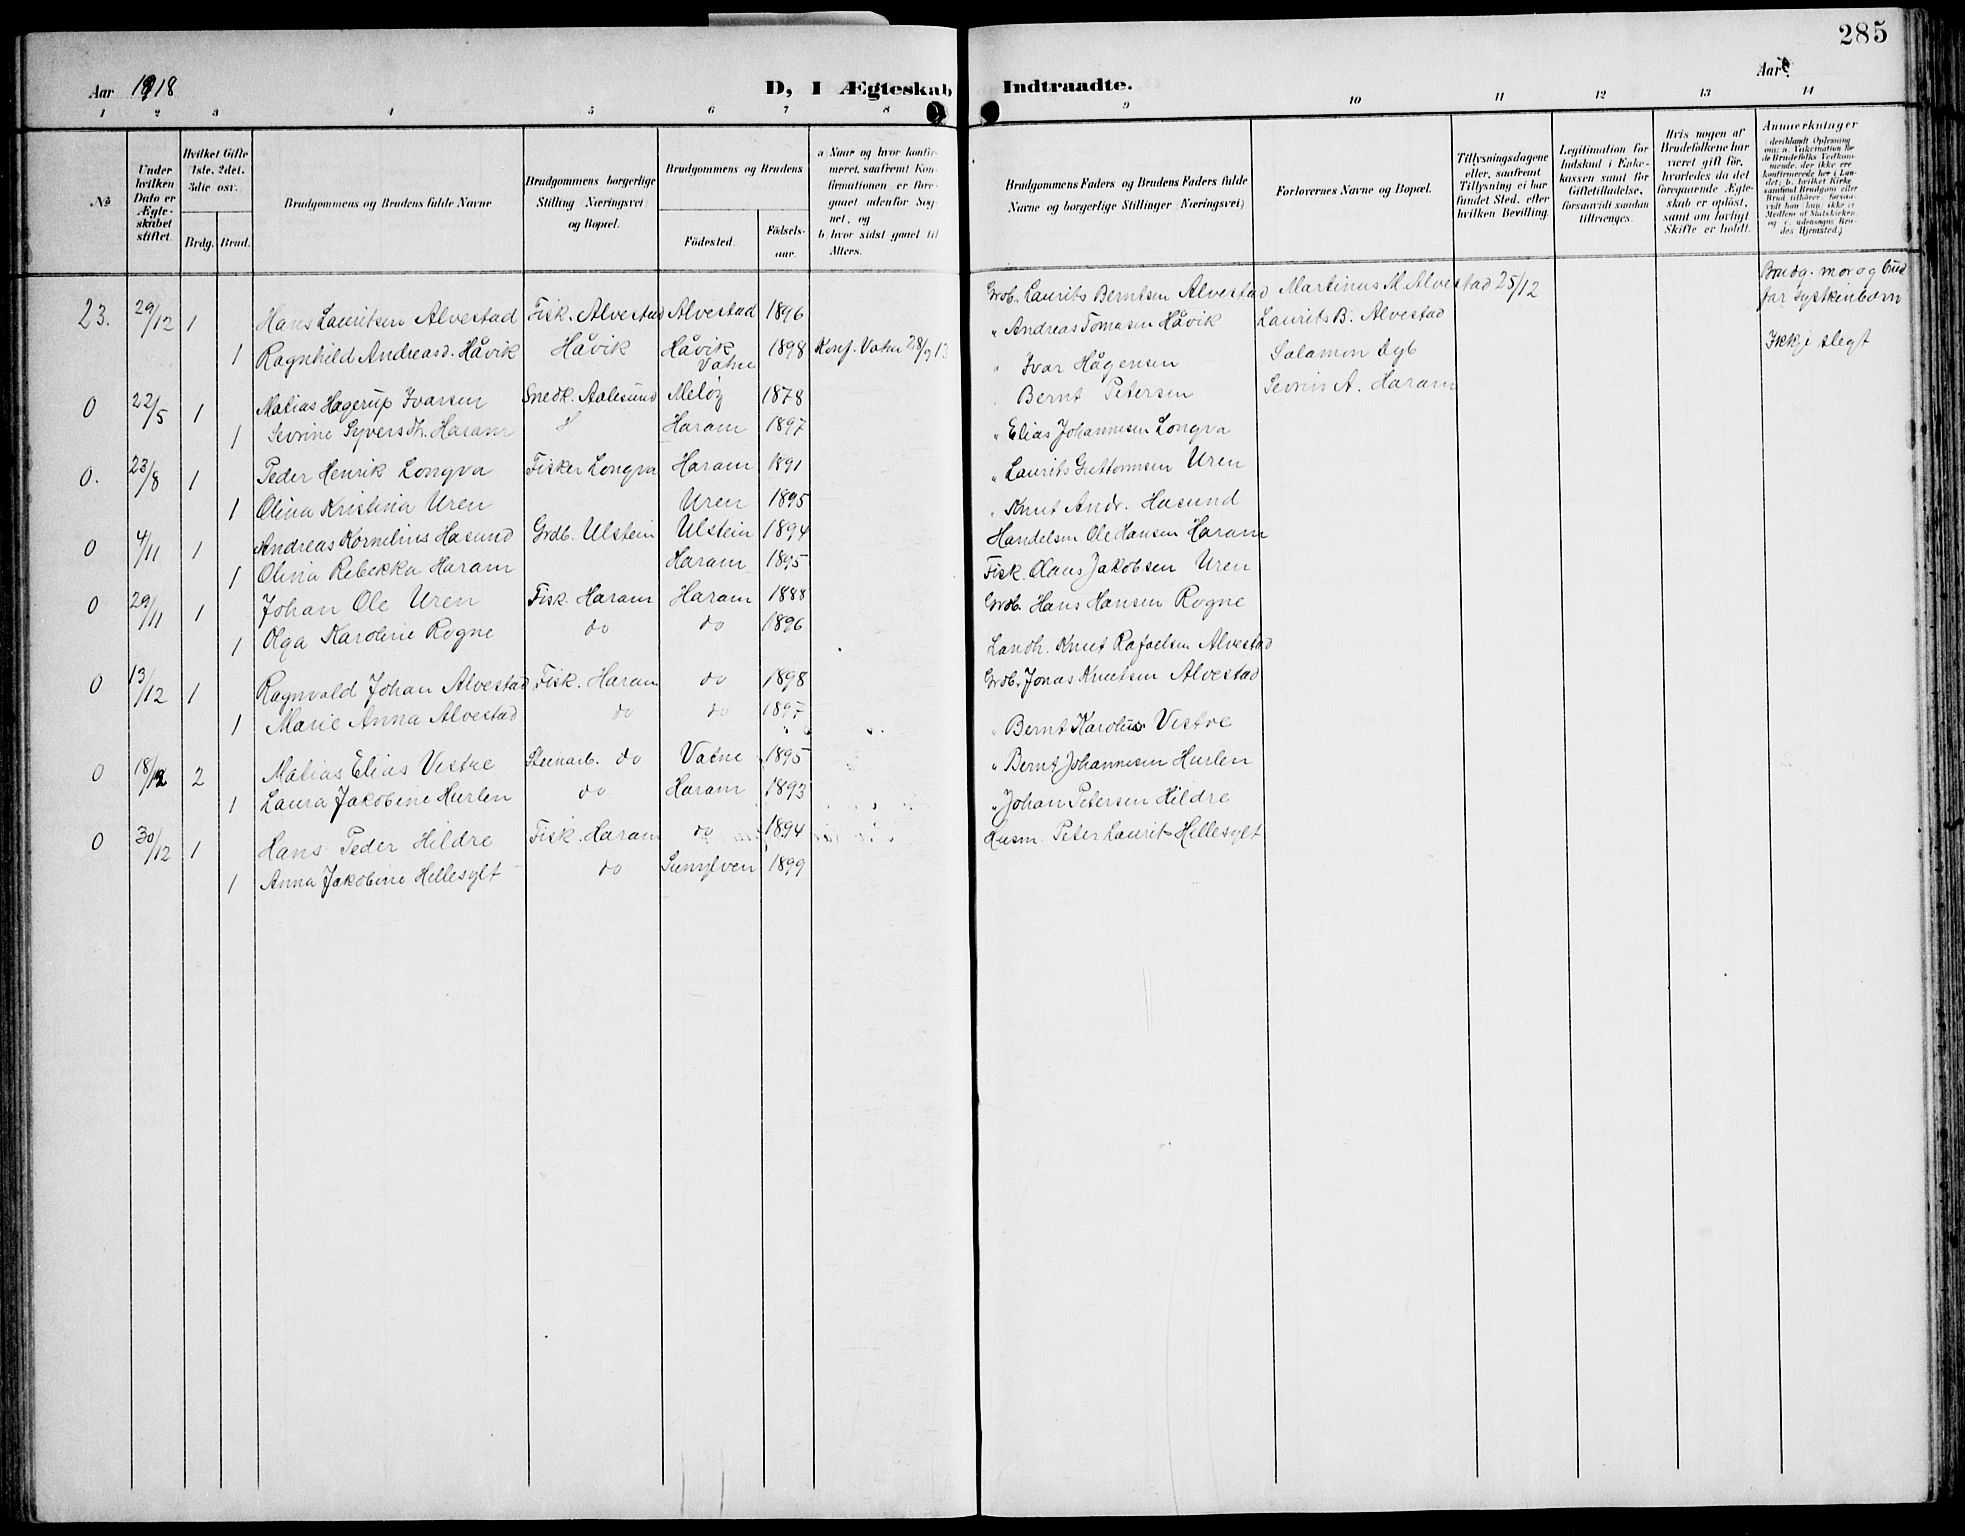 285
Aar 1918 D, I Ægteskab Indtraadte. Aar
1 2 3 4 5 6 7 8 9 10 11 12 13 14
No
Under hvilken Dato er Ægteskabet stiftet.
Hvilket Gifte 1ste, 2det, 3die osv.
Brdg. Brud.
Brudgommens og Brudens fulde Navne
Brudgommens borgerlige Stilling (Næringsvei) og Bopæl.
Brudgommens og Brudens
Födested. Födselsaar.
a) Naar og hvor konfirmeret, saafremt Konfirmationen er foregaaet udenfor Sognet, og
b) hvor sidst gaaet til Alters.
Brudgommens Faders og Brudens Faders fulde Navne og borgerlige Stillinger (Næringsvei)
Forlovernes Navne og Bopæl.
Tillysningsdagene eller, saafremt Tillysning ei har fundet Sted, efter hvilken Bevilling.
Legitimation for Indskud i Enkekassen samt for Giftetilladelse, forsaavidt saadan tiltrænges.
Hvis nogen af Brudefolkene har været gift för, hvorledes da det foregaaende Ægteskab er oplöst, samt om lovligt Skifte er holdt.
Anmærkninger
23. 29/12 1 Hans Lauritsen Alvestad Fisk. Alvestad Alvestad 1896 Grdb. Laurits Berntsen Alvestad Martinus M. Alvestad 25/12 Brudg. mor og brud far syskinbørn
1 Ragnhild Andreasd. Håvik Håvik Håvik Vatne 1898 Konf. Vatne 28/9 13 " Andreas Tomasen Håvik Laurits B. Alvestad Ikkje slegt
0 22/5 1 Matias Hagerup Ivarsen Snedk. Aalesund Meløy 1878 " Ivar Hågensen Salamon Dyb
1 Sevrine Syversdt. Haram Haram 1897 " Bernt Petersen Sevrin A. Haram
0. 23/8 1 Peder Henrik Longva Fisker Longva Haram 1891 " Elias Johannesen Longva
1 Olina Kristina Uren Uren 1895 " Laurits Guttormsen Uren
0 4/11 1 Andreas Kornelius Hasund Grdb. Ulstein Ulstein 1894 " Knut Andr. Hasund
1 Olina Rebekka Haram Haram 1895 Handelsm Ole Hansen Haram
0 29/11 1 Johan Ole Uren Fisk. Haram Haram 1888 Fisk. Olaus Jakobsen Uren
1 Olga Karoline Rogne do do 1896 Grdb. Hans Hansen Rogne
0 13/12 1 Ragnvald Johan Alvestad Fisk. Haram do 1898 Landh. Knut Rafaelsen Alvestad
1 Marie Anna Alvestad do do 1897 Grdb. Jonas Knutsen Alvestad
0 18/12 2 Matias Elias Vestre Steinarb. do Vatne 1895 " Bernt Karolus Vestre
1 Laura Jakobine Hurlen do Haram 1893 " Bernt Johannesen Hurlen
0 30/12 1 Hans Peder Hildre Fisk. Haram do 1894 " Johan Petersen Hildre
1 Anna Jakobine Hellesylt do Sunylven 1899 Husm. Peter Laurits Hellesylt